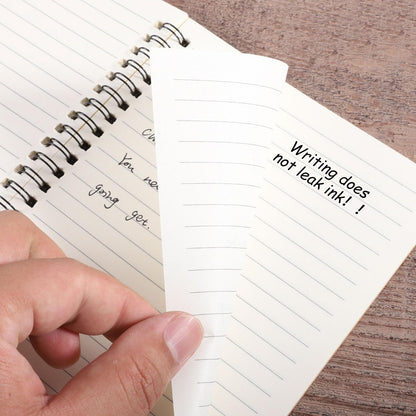 You
going get.
Writing does
not leak ink! !